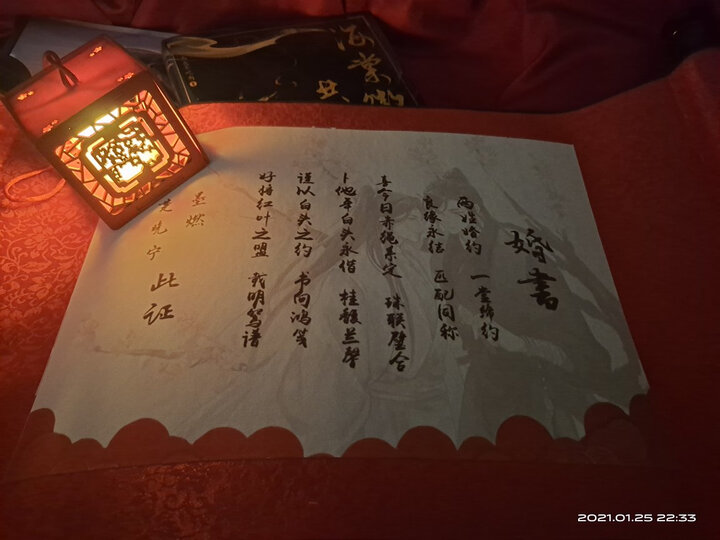 海棠
共
婚書
两姓婚约 一堂缔约
良缘永结 匹配同称
喜今日赤绳系定 珠联璧合
卜他年白头永偕 桂馥兰馨
谨以白头之约 书向鸿笺
好将红叶之盟 载明鸳谱
墨燃
楚晚宁 此证
2021.01.25 22:33